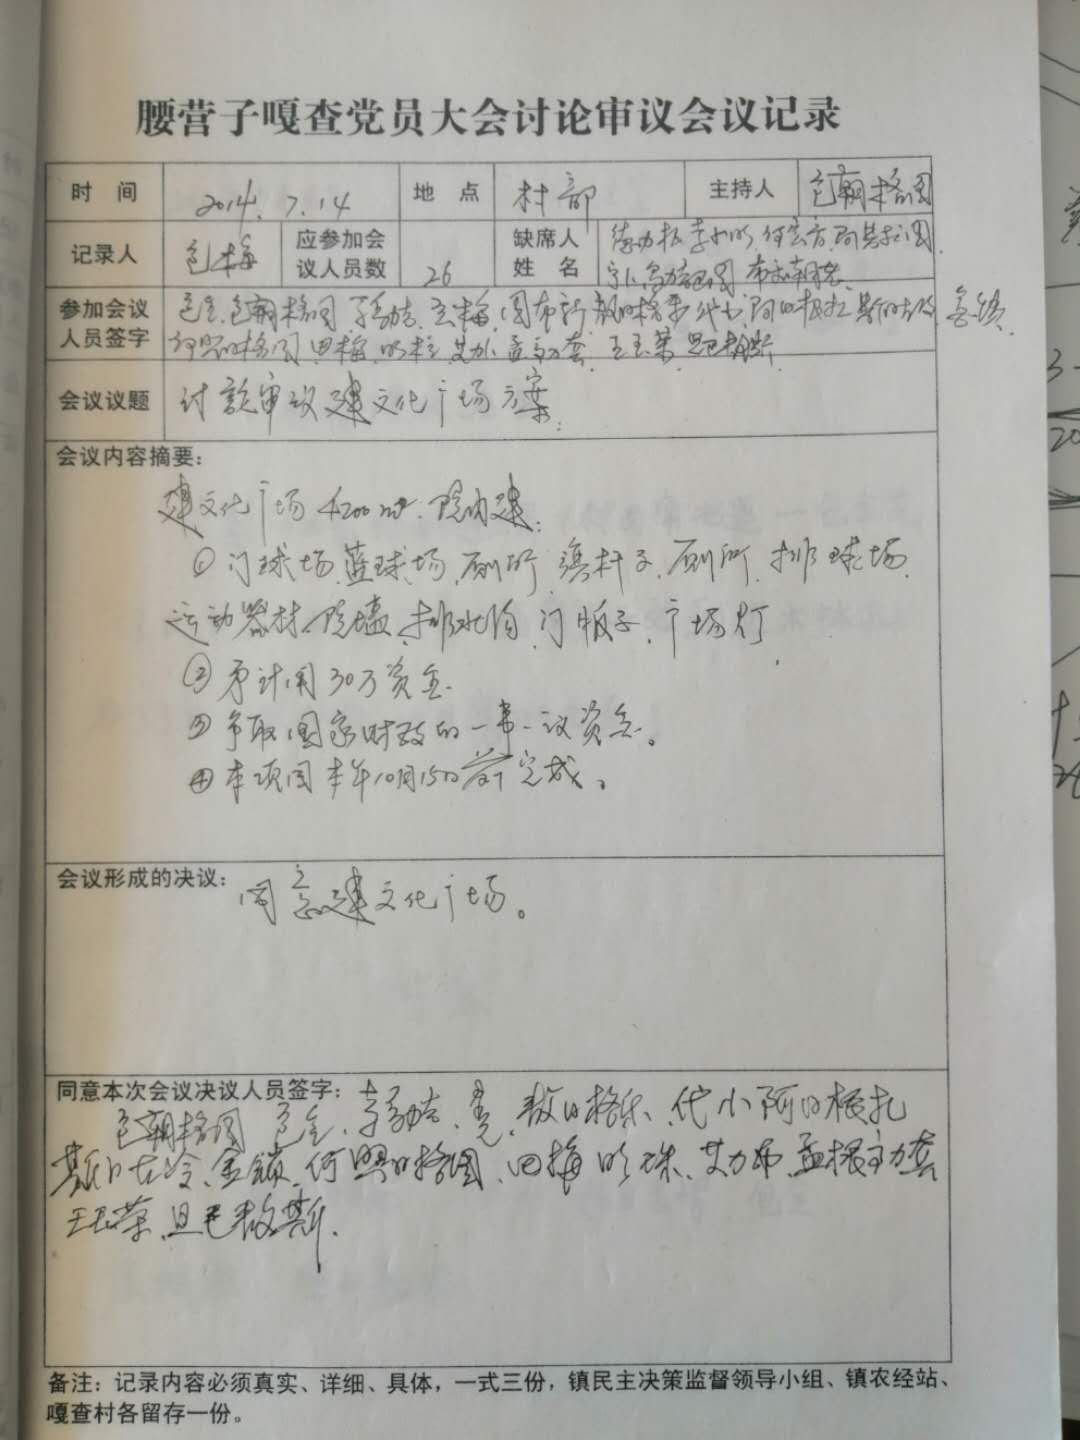 腰营子嘎查党员大会讨论审议会议记录
时 间 2014.7.14 地 点 村部 主持人 包朝格图
记录人 包梅 应参加会议人员数 26 缺席人姓名
参加会议人员签字 包金 包朝格图
田梅 王玉荣
会议议题 讨论审议建文化广场方案
会议内容摘要：
建文化广场 4200m². 院内建:
①门球场,篮球场,厕所,旗杆子,厕所,排球场,
运动器材,院墙,排水沟,门牌子,广场灯
②予计用30万资金.
③争取国家财政的一事一议资金。
④本项目本年10月15日前完成。
会议形成的决议： 同意建文化广场。
同意本次会议决议人员签字：
包朝格图 包金 敖日格乐、代小 阿日根扎
金锁、何 田梅 明珠、艾力布
王玉荣、
备注：记录内容必须真实、详细、具体，一式三份，镇民主决策监督领导小组、镇农经站、
嘎查村各留存一份。